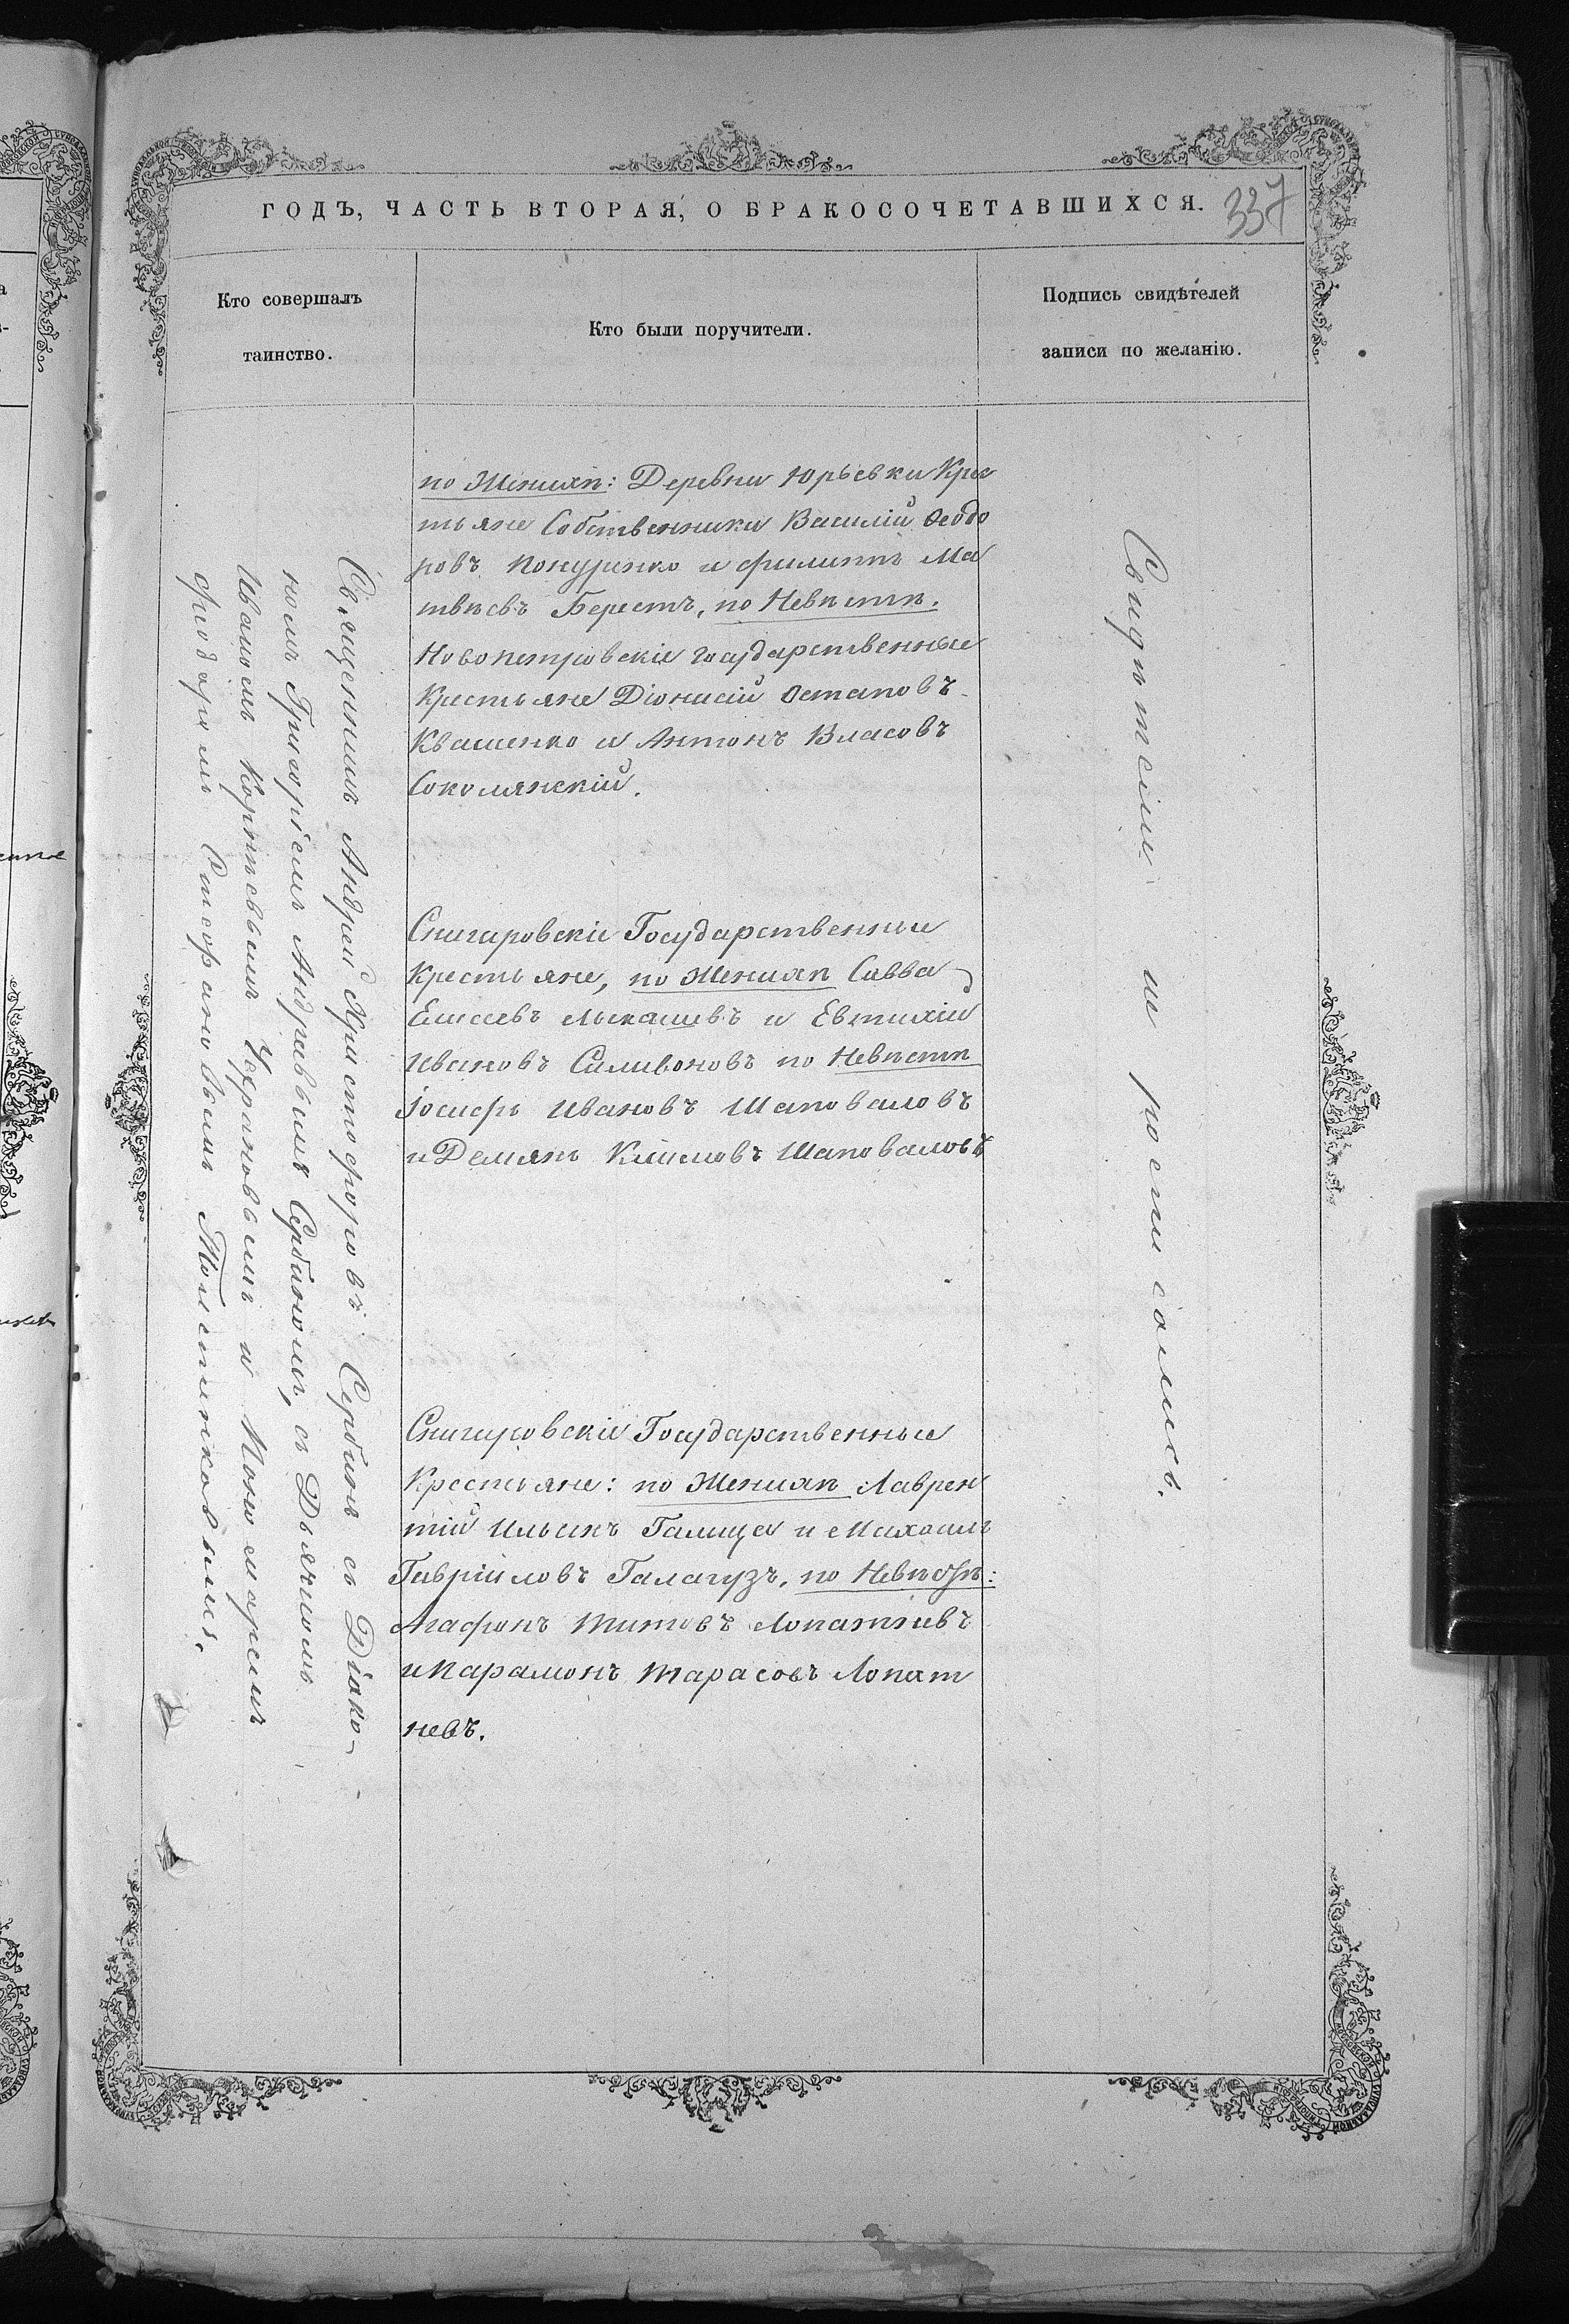 ГОДЪ, ЧАСТЬ ВТОРАЯ, О БРАКОСОЧЕТАВШИХСЯ.
337
Кто совершалъ
таинство.
Кто были поручители.
Подпись свидѣтелей
записи по желанію.
Священникъ Андрей Христофоровъ Сербинъ съ Діако-
номъ Григоріемъ Андреевымъ Сербиномъ, съ Дьячкомъ
Иваномъ Корнѣевымъ и Пономаремъ
Толстиковымъ.
по Женихѣ: Деревни Юрьевки Крес
тьяне Собственники Василій Ѳеодо
ровъ и Филиппъ Ма
твѣевъ Берестъ, по Невѣстѣ.
Новопетровскіе государственные
Крестьяне Діонисій Остаповъ
Квашенко и Антонъ Власовъ
Соколянскій.
Снигировскіе Государственные
Крестьяне, по Женихѣ Савва
Елисеевъ и Евтихій
Ивановъ Силивоновъ по Невѣстѣ
Іосифъ Ивановъ Шаповаловъ
и Демянъ Климовъ Шаповаловъ
Снигировскіе Государственные
Крестьяне: по Женихѣ Лаврен
тій Ильинъ Галица и Михаилъ
Гавріиловъ Галагузъ, по Невѣстѣ:
Агафонъ Титовъ Лопатневъ
и Парамонъ Тарасовъ Лопат
невъ.
Свидѣтели и росписались.